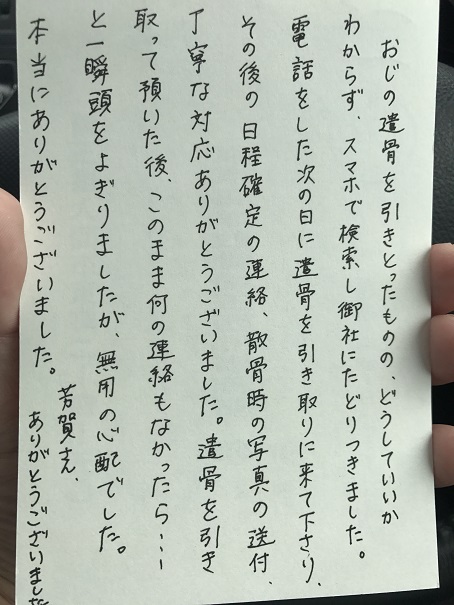 おじの遺骨を引きとったものの、どうしていいか
わからず、スマホで検索し御社にたどりつきました。
電話をした次の日に遺骨を引き取りに来て下さり、
その後の日程確定の連絡、散骨時の写真の送付、
丁寧な対応ありがとうございました。遺骨を引き
取って預いた後、このまま何の連絡もなかったら…
と一瞬頭をよぎりましたが、無用の心配でした。
本当にありがとうございました。
芳賀さん、
ありがとうございました